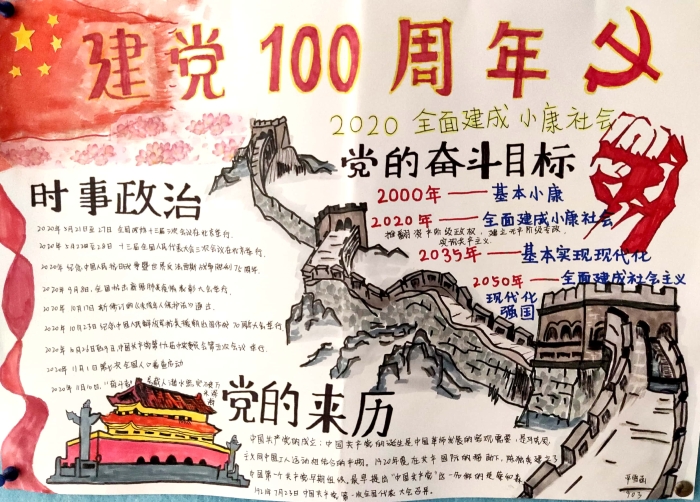 建党100周年
2020 全面建成小康社会
党的奋斗目标
2000年——基本小康
2020年——全面建成小康社会
推翻资产阶级政权，建立无产阶级专政，
实现共产主义。
2035年——基本实现现代化
2050年——全面建成社会主义
现代化
强国
时事政治
2020年5月21日至27日 全国政协十三届三次会议在北京举行。
2020年5月22日至28日 十三届全国人民代表大会三次会议在北京举行。
2020年 纪念中国人民抗日战争暨世界反法西斯战争胜利75周年
2020年9月8日，全国抗击新冠肺炎疫情表彰大会举行
2020年10月17日 新修订的《未成年人保护法》通过。
2020年10月23日 纪念中国人民志愿军抗美援朝出国作战70周年大会举行
2020年10月26日
2020年11月1日 第七次全国人口普查启动
2020年11月10日，"奋斗者"
党的来历
中国共产党的成立：中国共产党的诞生是中国革命发展的客观需要，是马克思
主义同中国工人运动相结合的产物。1920年
中国第一个共产党早期组织。最早提出"中国共产党"这一名称的是蔡和森
1921年7月23日 中国共产党第一次全国代表大会召开。
903